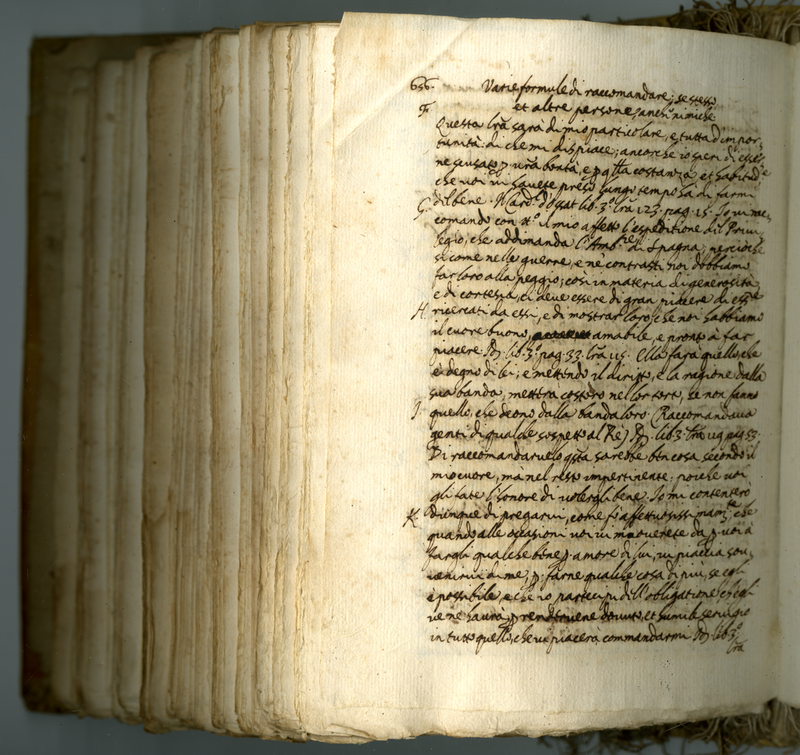 656. Varie formule di raccomandare; se stesso
et altre persone, anch. nimiche
F.
Questa lrã sarà di mio particolare, e tutta d'impor-
tunità: di che mi dispiace; ancorche io speri di esser-
ne scusato p vrã bontà, e p qlla costanza et habitudine
che voi vi havete preso lungo tempo hà di farmi
del bene. Il Card. d'Ossat lib. 3.º lrã 123. pag. 15. Io vi rac-
G.
comando con il mio affetto l'espeditione del Privi
legio, che addimanda l'Amb.re di Spagna; percioche
si come nelle guerre, e nè contrasti noi dobbiamo
far loro alla peggio; così in materia di generosità,
e di cortesia, ci deve essere di gran piacere di essere
H.
ricercati da essi, e di mostrar loro, che noi habbiamo
il cuore buono, amabile, e pronto à far
piacere. lib. 3.º pag. 33. lrã 115. Ella farà quello, che
è degno di lei; e mettendo il diritto, e la ragione dalla
sua banda, metterà costoro nel lor torto, se non fanno
I.
quello, che deono dalla banda loro. (Raccomandava
genti di qualche sospetto al Rè) lib. 3. lrã 119 pag. 53.
Di raccomandarvelo qsta sarebbe ben cosa secondo il
mio cuore, mà nel resto impertinente: poiche voi
gli fate l'honore di volergli bene. Io mi contenterò
K.
dunque di pregarvi, come fò affettuosissimam.te che
quando alle occasioni voi vi moverete da p voi à
fargli qualche bene p amore di lui, vi piaccia sou-
venirvi di me, p farne qualche cosa di più, se egli
è possibile, e che io partecipi dell'obligatione, ch'egli
ve ne haurà, p rendervene dovuto, et humile servigio
in tutto quello, che vi piacerà commandarmi lib. 3.º
lrã